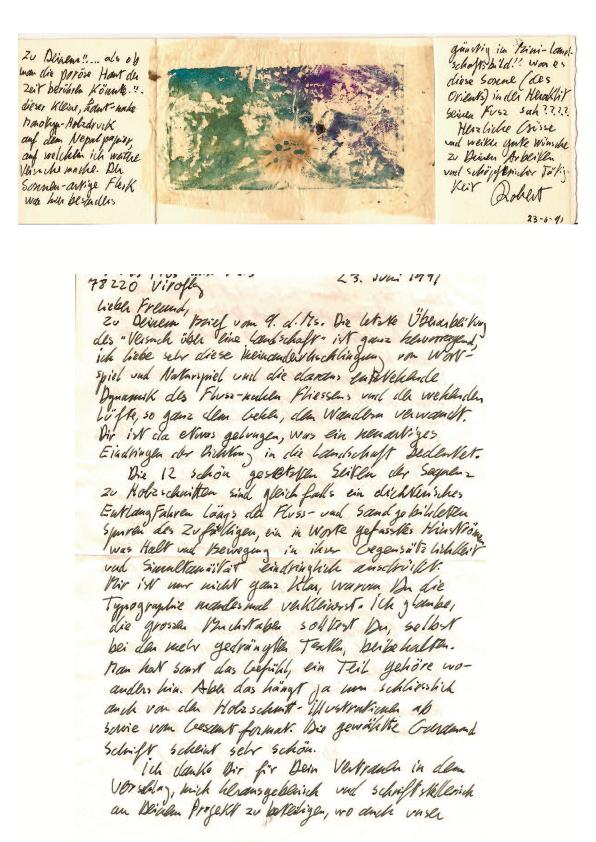 Zu Deinem "..... als ob
man die poröse Haut der
Zeit berühren könnte.."
dieser kleine, haut-nahe
Monotyp-Holzdruck
auf dem Nepalpapier,
auf welchem ich weitere
Versuche mache. Der
Sonnen-artige Fleck
war hier besonders
günstig im Mini-Land-
schaftsbild!! war es
diese Sonne (des
Orients) in der Heraklit
seinen Fusz sah????
Herzliche Grüsse
und weiter gute Wünsche
zu Deinen Arbeiten
und schöpferischer Tätig-
keit Robert
23-6-91
78220 Viroflay
23. Juni 1991
Lieber Freund,
zu Deinem Brief vom 9. d. Ms. Die letzte Überarbeitung
des "Versuch über eine Landschaft" ist ganz hervorragend,
ich liebe sehr diese Ineinanderschlingung von Wort-
spiel und Naturspiel und die daraus entstehende
Dynamik des Flusz-nahen Fliessens und der wehenden
Lüfte, so ganz dem Gehen, dem Wandern verwandt.
Dir ist da etwas gelungen, was ein neuartiges
Eindringen der Dichtung in die Landschaft bedeutet.
Die 12 schön gesetzten Seiten der Sequenz
zu Holzschnitten sind gleichfalls ein dichterisches
Entlangfahren längs der Fluss- und Sandgebildeten
Spuren des Zufälligen, ein in Worte gefasstes
was Halt und Bewegung in ihrer Gegensätzlichkeit
und Simultaneität eindringlich ausdrückt.
Mir ist nur nicht ganz klar, warum Du die
Typographie manchesmal verkleinerst. Ich glaube,
die grossen Buchstaben solltest Du, selbst
bei den mehr gedrängten Texten, beibehalten.
Man hat sonst das Gefühl, ein Teil gehöre wo-
anders hin. Aber das hängt ja nun schliesslich
auch von den Holzschnitt-Illustrationen ab
sowie vom Gesamtformat. Die gewählte Garamond
Schrift scheint sehr schön.
Ich danke Dir für Dein Vertrauen in dem
Vorschlag, mich herausgeberisch und schriftstellerisch
an Deinem Projekt zu beteiligen, wo auch unser